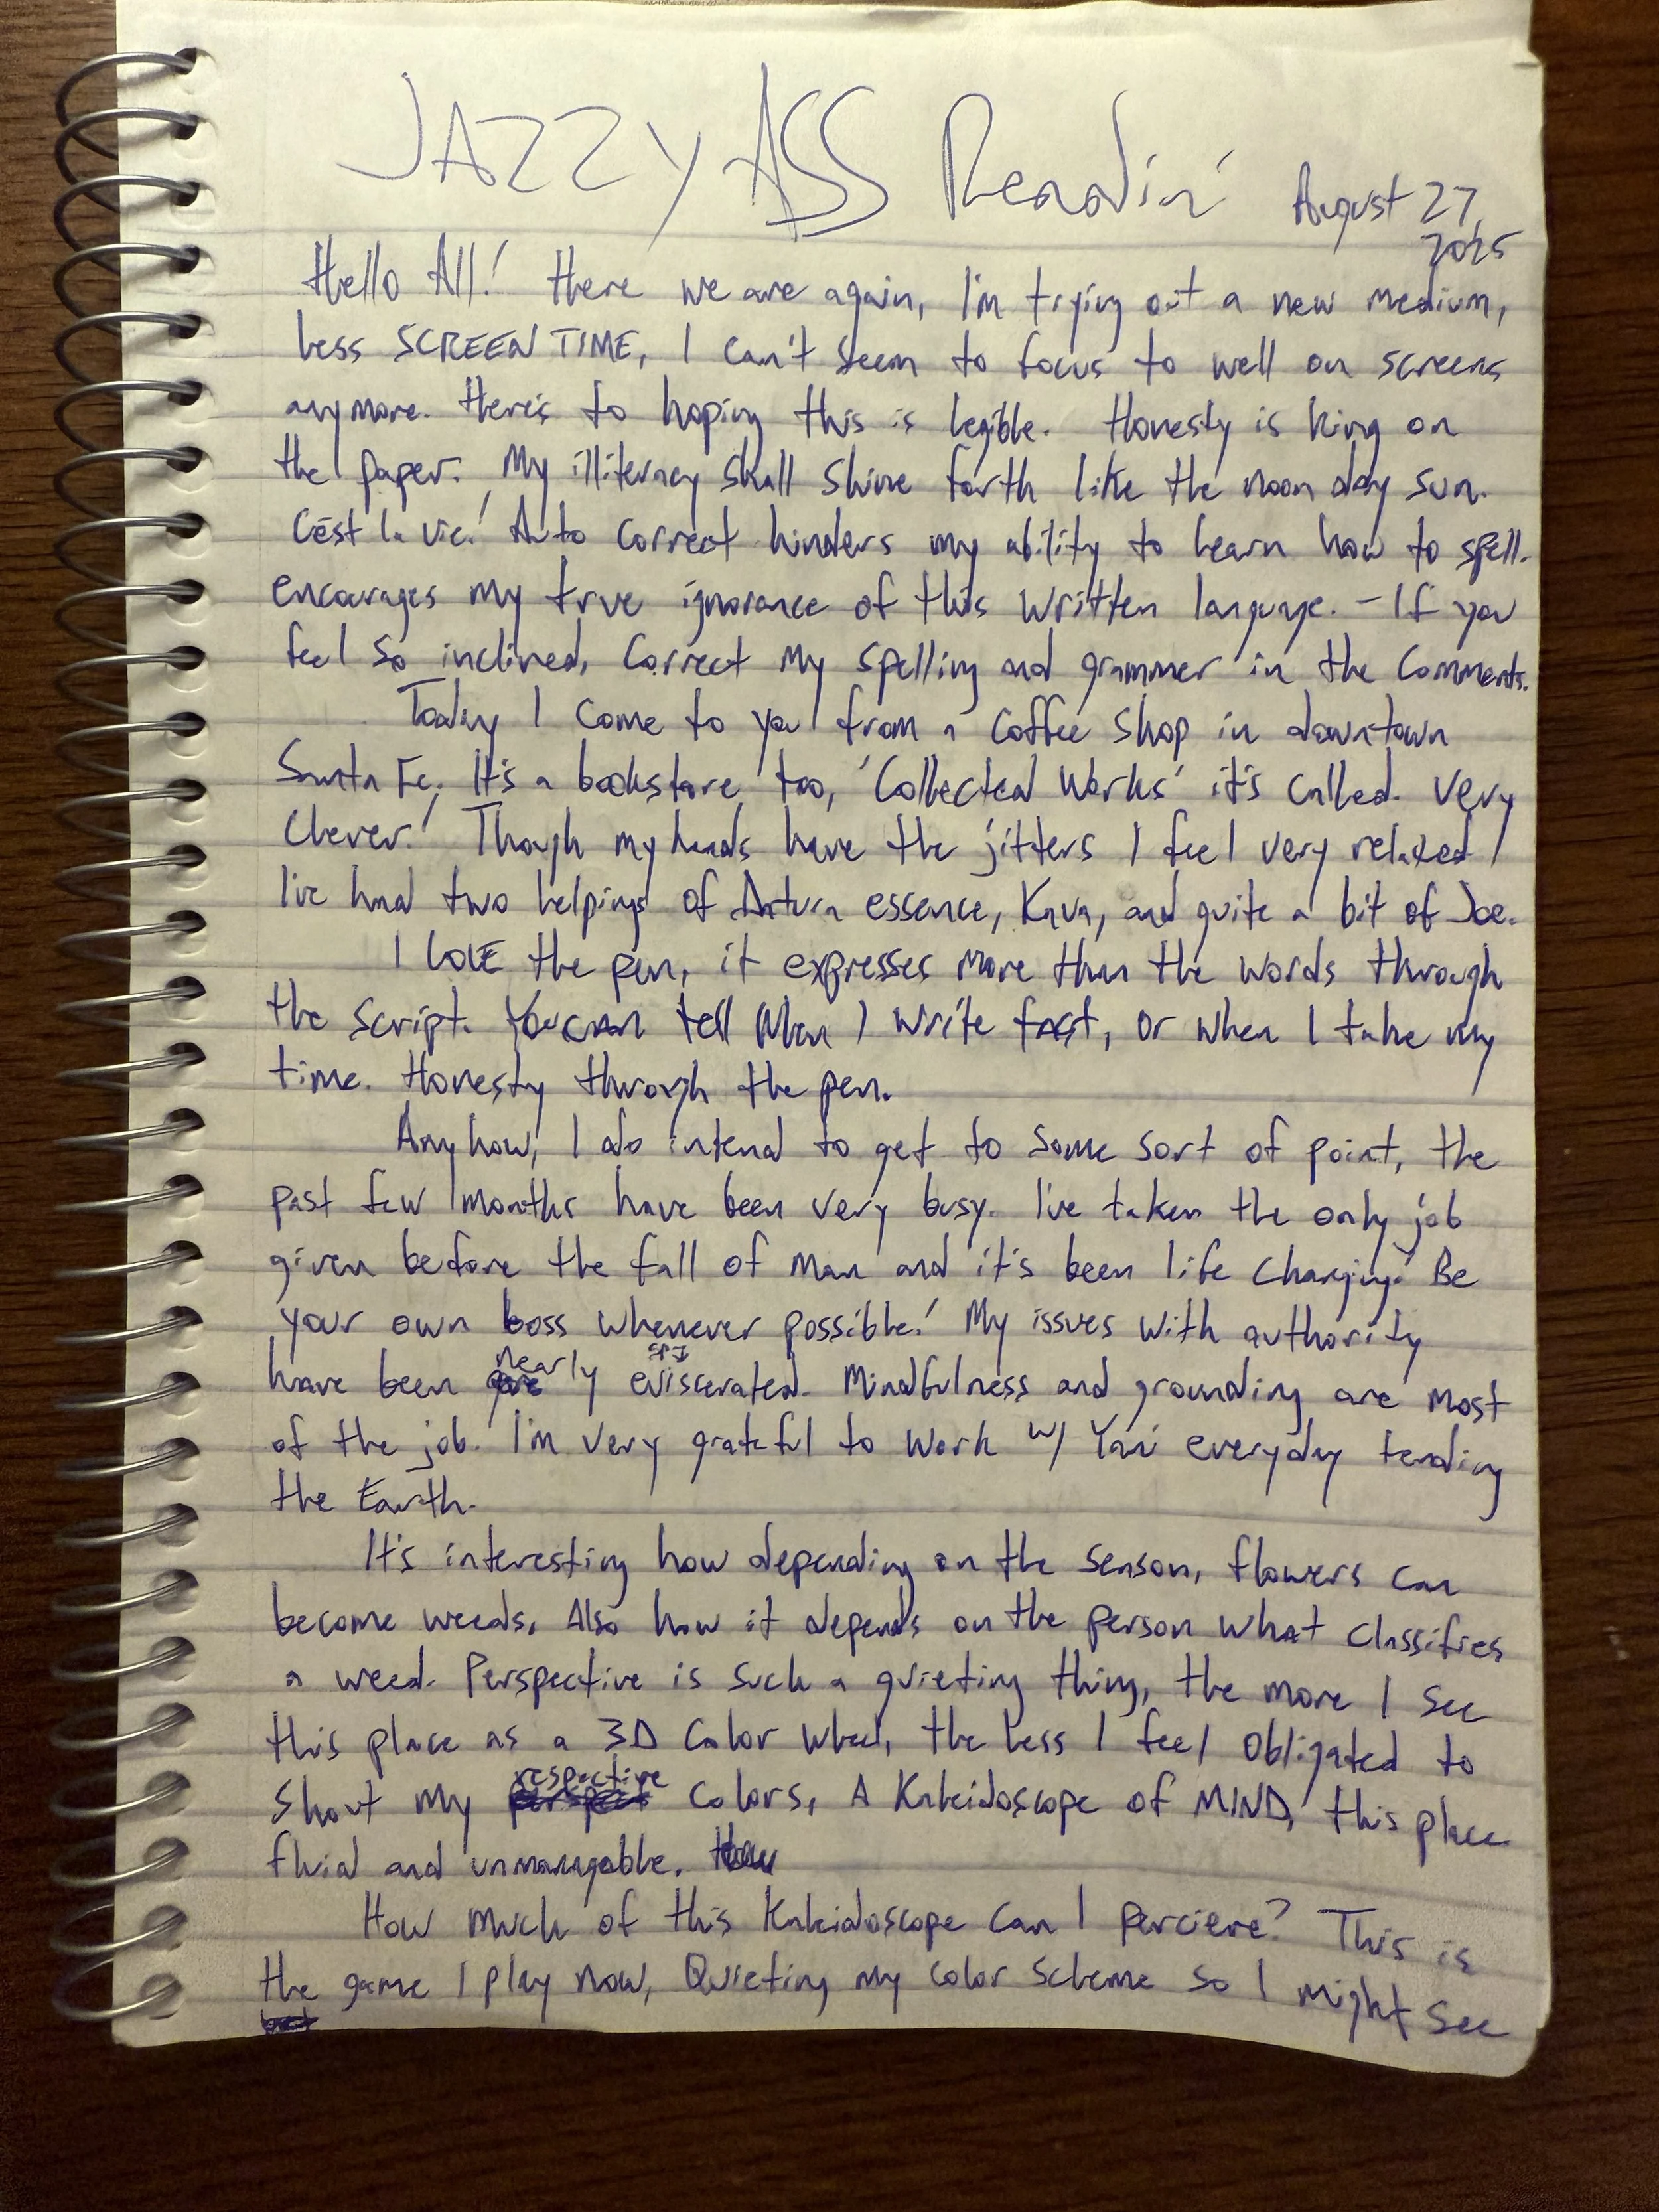 JAZZY ASS Readin'
August 27,
2025
Hello All! Here we are again, I'm trying out a new medium,
Less SCREEN TIME, I can't seem to focus to well on screens
anymore. Here's to hoping this is legible. Honesty is king on
the paper. My illiteracy shall shine forth like the noon day sun.
C'est la vie! Auto correct hinders my ability to learn how to spell.
encourages my true ignorance of this written language. - If you
feel so inclined, correct my spelling and grammer in the comments.
Today I come to you from a coffee shop in downtown
Santa Fe. It's a bookstore too, 'Collected Works' it's called. Very
Clever! Though my hands have the jitters I feel very relaxed
I've had two helpings of Datura essence, Kava, and quite a bit of Joe.
I LOVE the pen, it expresses more than the words through
the script. You can tell when I write fast, or when I take my
time. Honesty through the pen.
Anyhow, I do intend to get to some sort of point, the
past few months have been very busy. I've taken the only job
given before the fall of man and it's been life changing. Be
your own boss whenever possible! My issues with authority
have been nearly eviscerated. Mindfulness and grounding are most
of the job. I'm very grateful to work w/ Yani everyday tending
the Earth.
It's interesting how depending on the season, flowers can
become weeds. Also how it depends on the person what classifies
a weed. Perspective is such a quieting thing, the more I see
this place as a 3D color wheel, the less I feel obligated to
shout my respective colors. A Kaleidoscope of MIND, this place
fluid and unmanagable.
How much of this Kaleidoscope can I percieve? This is
the game I play now, Quieting my color scheme so I might see